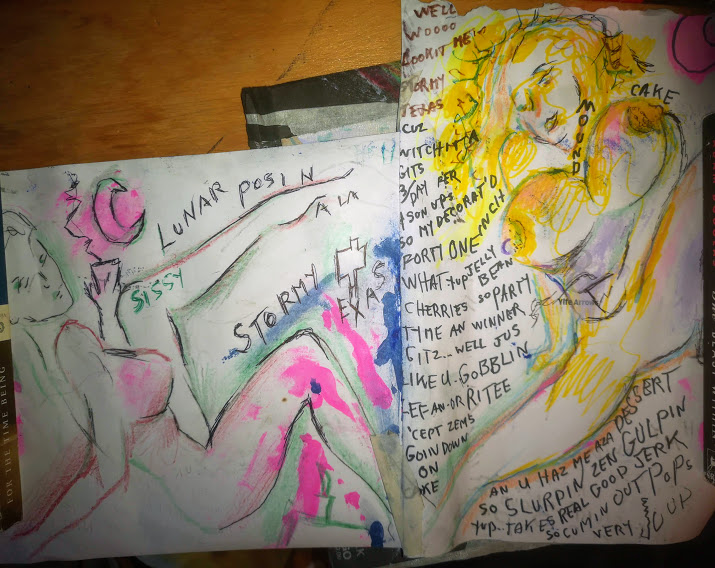 LUNAR POSIN
A LA
SISSY
STORMY
TEXAS
FOR THE TIME BEING
WELL
WOOOO
LOOKIT ME
STORMY
TEXAS
CUZ
GITS
3/DAY PER
SON UPS
SO MY DECORAT'D
FORTY ONE INCH
MOUND
CAKE
WHAT-YUP JELLY
BEAN
CHERRIES SO PARTY
TIME AN WINNER
GITZ... WELL JUS
LIKE U. GOBBLIN
LEF AN-OR RITEE
'CEPT ZEMS
GOIN DOWN
ON
Yife Arrows
AN U HAZ ME AZA DESSERT
SO SLURPIN ZEN GULPIN
YUP.. TAKES REAL GOOD JERK
SO CUMIN OUT POPS
VERY